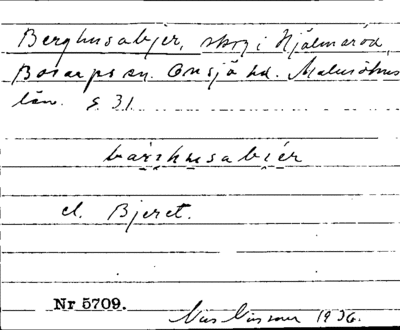 Berghusabjer, skog i Hjälmaröd,
Bosarps sn. Onsjö hd. Malmöhus
län. E 31.
bärshusabiér
el. Bjeret.
Nr 5709.
Nils Nilsson 1936.